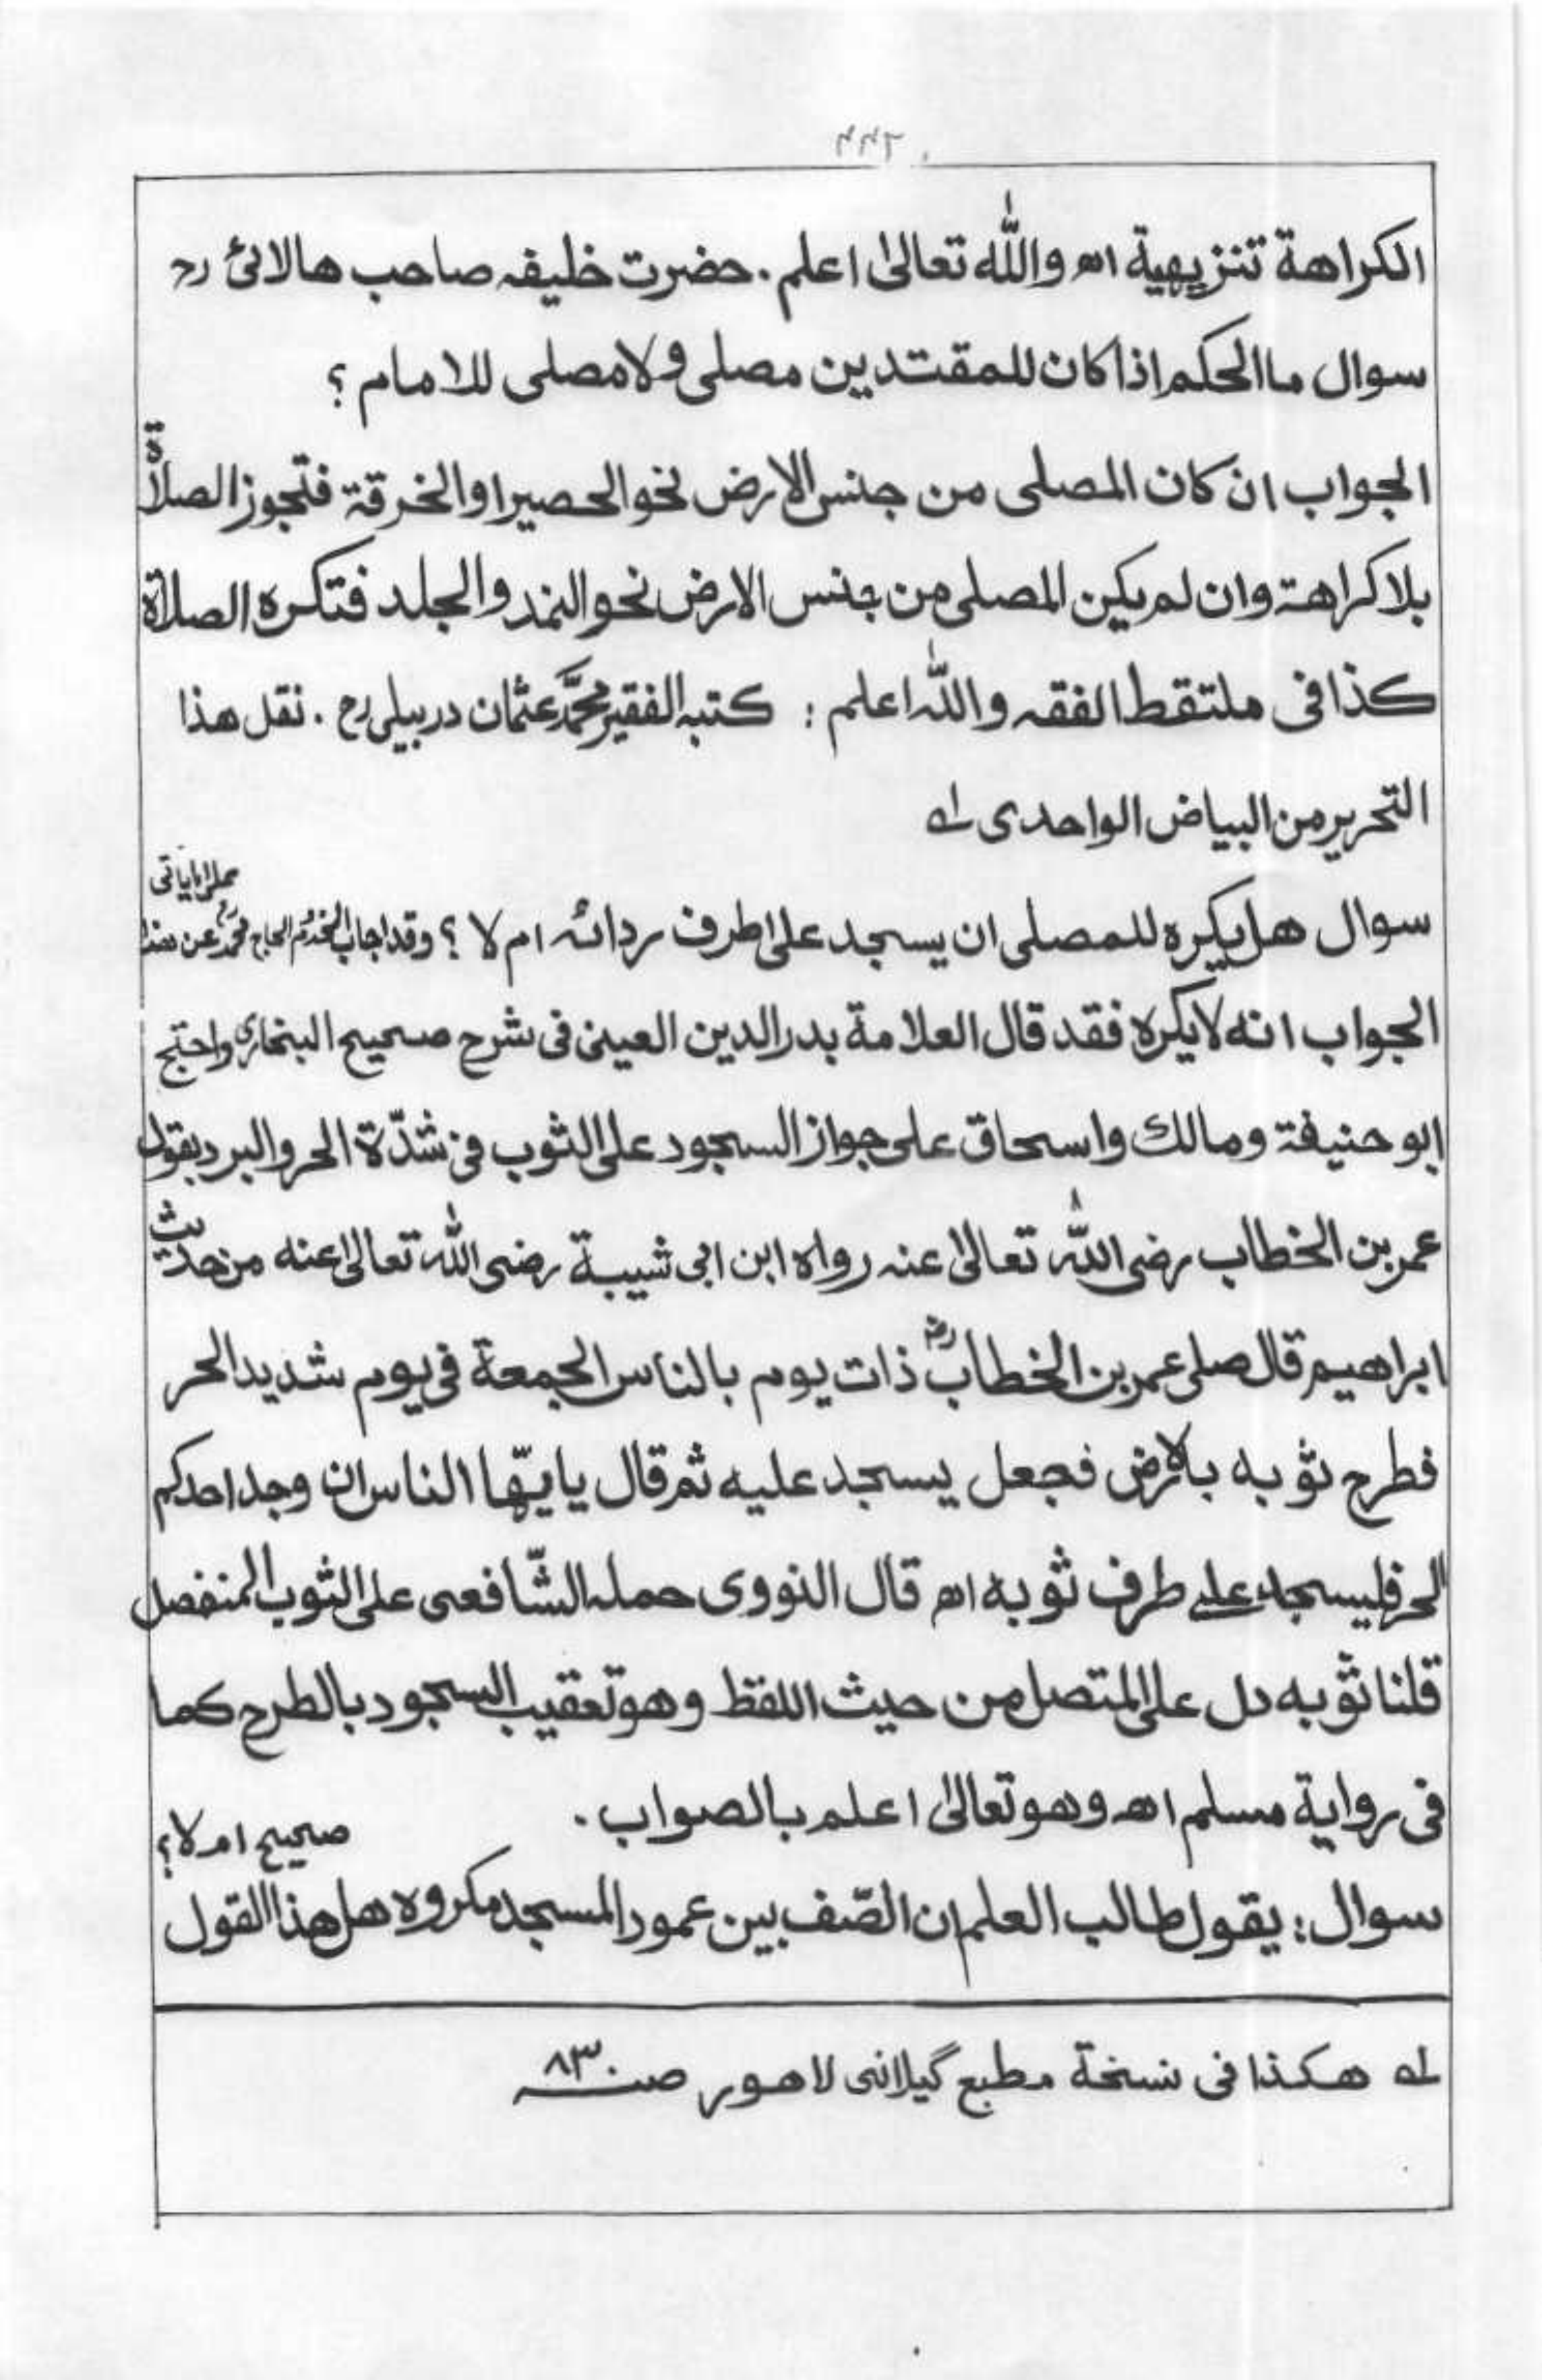 الكراهة تنزيهية اھ والله تعالىٰ اعلم . حضرت خليفہ صاحب هالائى رح
سوال ما الحكم اذا كان للمقتدين مصلى ولا مصلى للامام ؟
الجواب ان كان المصلى من جنس الارض نحو الحصير او الخرقة فتجوز الصلاة
بلا كراهة وان لم يكن المصلى من جنس الارض نحو النمد والجلد فتكره الصلاة
كذا فى ملتقط الفقه والله اعلم : كتبه الفقير محمد عثمان دربيلى رح . نقل هذا
التحرير من البياض الواحدى لـه
سوال هل يكره للمصلى ان يسجد على اطرف ردائه ام لا ؟ وقد اجاب المخدوم الحاج محمد رح عن هذا
الجواب انه لا يكره فقد قال العلامة بدر الدين العينى فى شرح صحيح البخارى واحتج
ابو حنيفة ومالك واسحاق على جواز السجود على الثوب فى شدّة الحر والبرد بقول
عمر بن الخطاب رضى الله تعالىٰ عنه رواه ابن ابى شيبة رضى الله تعالىٰ عنه من حديث
ابراهيم قال صلى عمر بن الخطاب رض ذات يوم بالناس الجمعة فى يوم شديد الحر
فطرح ثوبه بالارض فجعل يسجد عليه ثم قال يايّها الناس ان وجد احدكم
الحر فليسجد على طرف ثوبه اھ قال النووى حمله الشّافعى على الثوب المنفصل
قلنا ثوبه دل على المتصل من حيث اللفظ وهو تعقيب السجود بالطرح كما
فى رواية مسلم اھ وهو تعالىٰ اعلم بالصواب .
سوال : يقول طالب العلم ان الصّف بين عمود المسجد مكروه هل هذا القول
صحيح ام لا ؟
لـه هكذا فى نسخة مطبع گيلانى لاهور صـ ٨٣